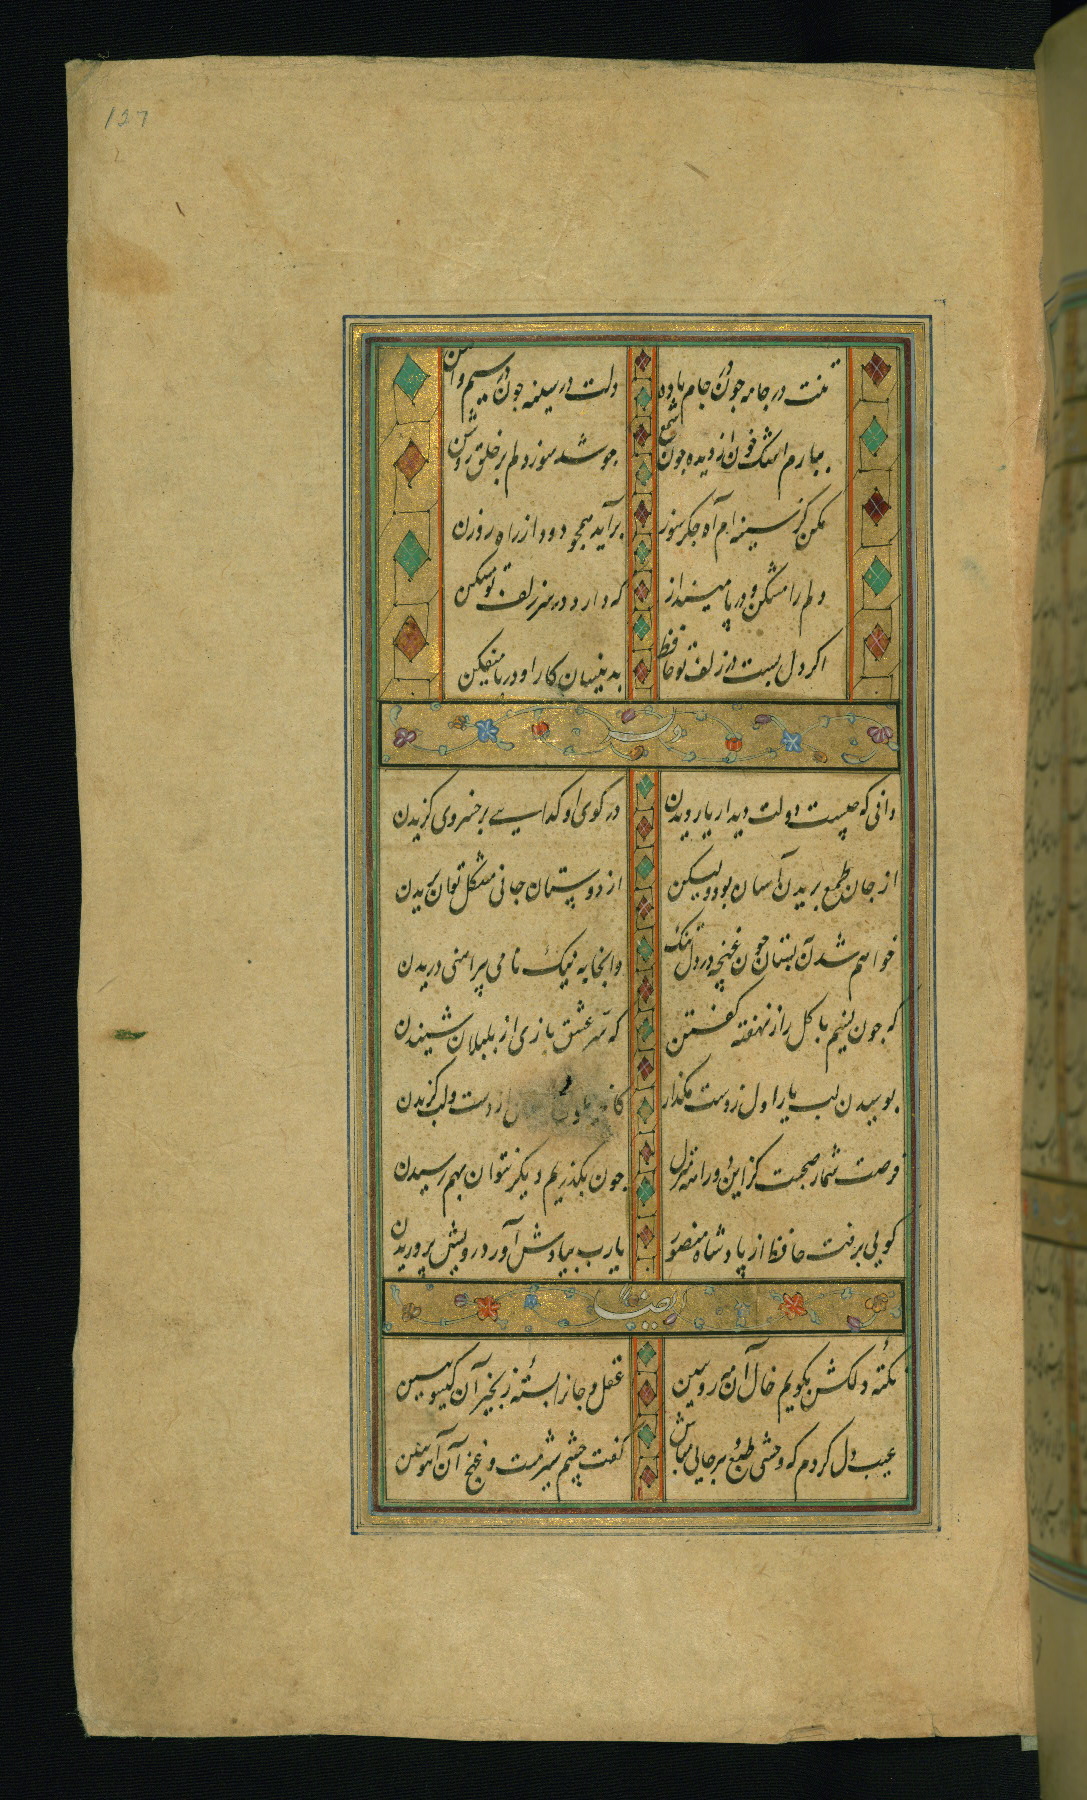 127
تنت در جامه چون در جام باده
دلت در سینه چون در سیم آهن
ببارم اشک خون از دیده چون شمع
چو شد سوز دلم بر خلق روشن
مکن کز سینه‌ام آه جگر سوز
برآید همچو دود از راه روزن
دلم را مشکن و در پا مینداز
که دارد در سر زلف تو مسکن
اگر دل بست در زلف تو حافظ
بدینسان کار او در پا میفکن
وله
دانی که چیست دولت دیدار یار دیدن
در کوی او گدایی بر خسروی گزیدن
از جان طمع بریدن آسان بود ولیکن
از دوستان جانی مشکل توان بریدن
خواهم شدن ببستان چون غنچه در دل تنگ
وانجا به نیک نامی پیراهنی دریدن
که چون نسیم با گل راز نهفته گفتن
که سر عشق بازی از بلبلان شنیدن
بوسیدن لب یار اول ز دست مگذار
از دست و لب گزیدن
فرصت شمار صحبت کز این دو راهه منزل
چون بگذریم دیگر نتوان بهم رسیدن
گویی برفت حافظ از یاد شاه منصور
یارب بیادش آور درویش پروریدن
ایضا
نکته دلکش بگویم خال آن مه رو ببین
عقل و جانرا بسته زنجیر آن گیسو ببین
عیب دل کردم که وحشی طبع و هرجایی مباش
گفت چشم شیر مست و غنج آن آهو ببین